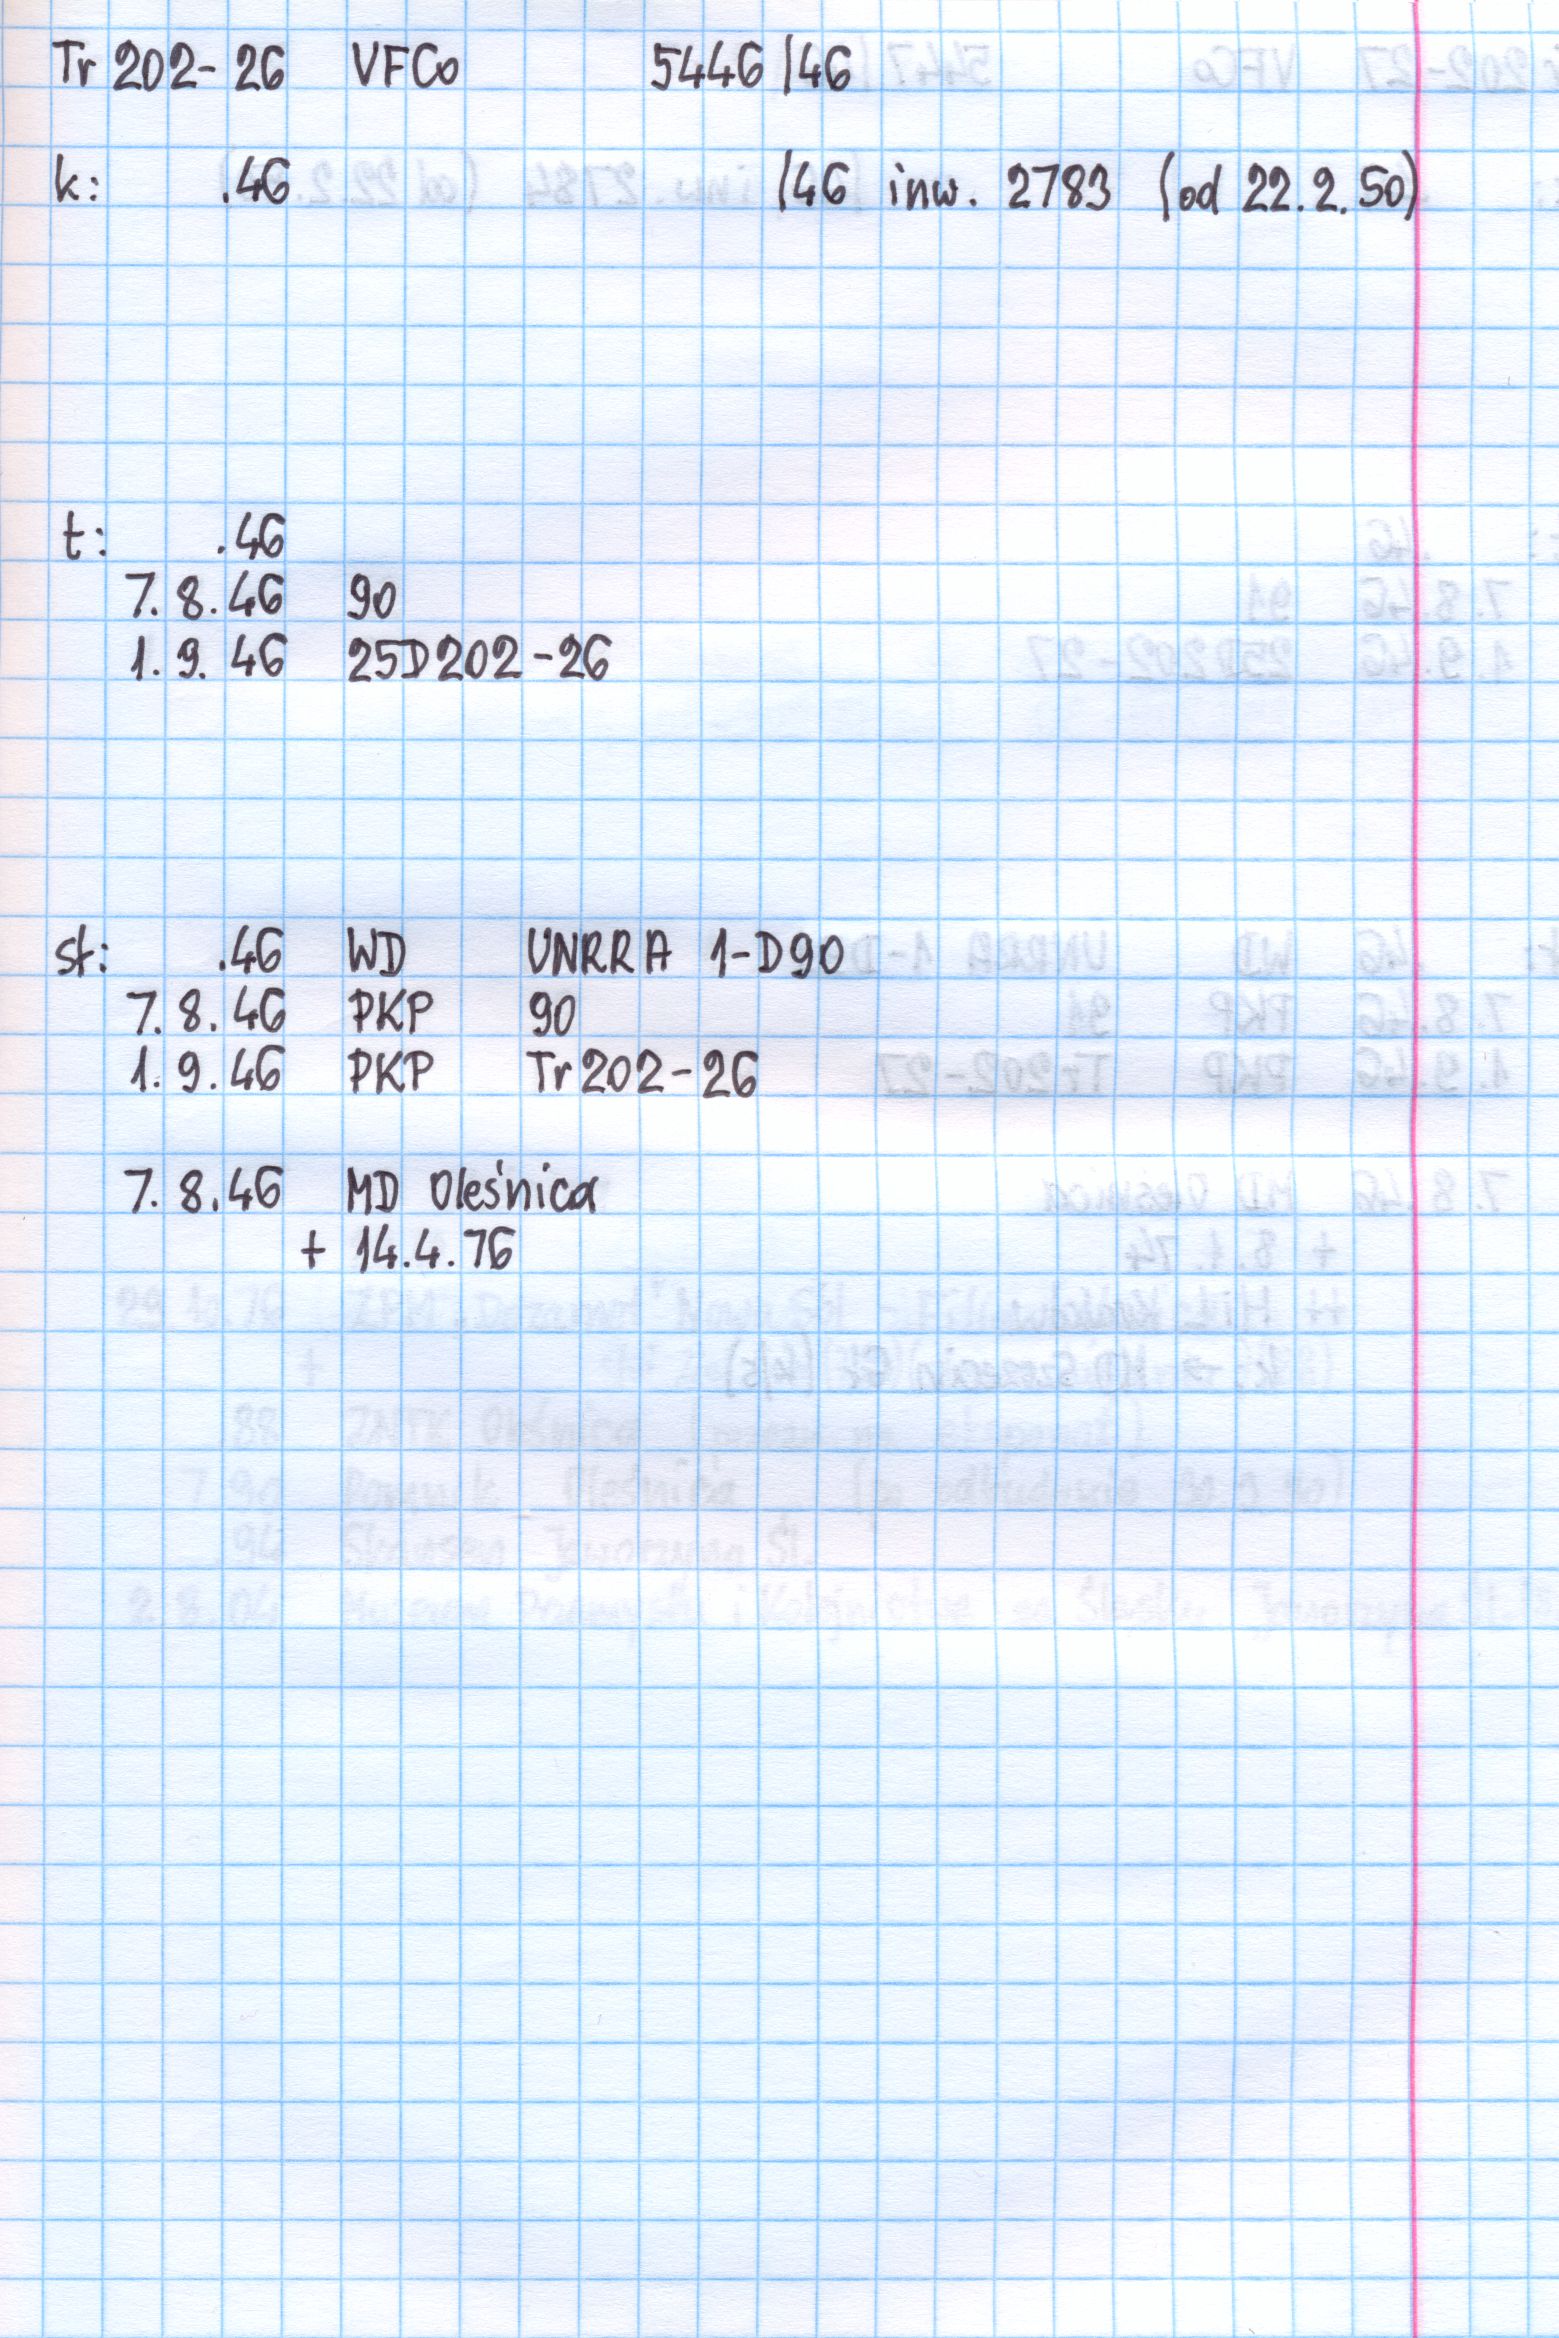 Tr 202-26 VFCo 5446/46
k: .46 /46 inw. 2783 (od 22.2.50)
t: .46
7.8.46 90
1.9.46 25D202-26
st: .46 WD UNRRA 1-D90
7.8.46 PKP 90
1.9.46 PKP Tr202-26
7.8.46 MD Oleśnica
+ 14.4.76